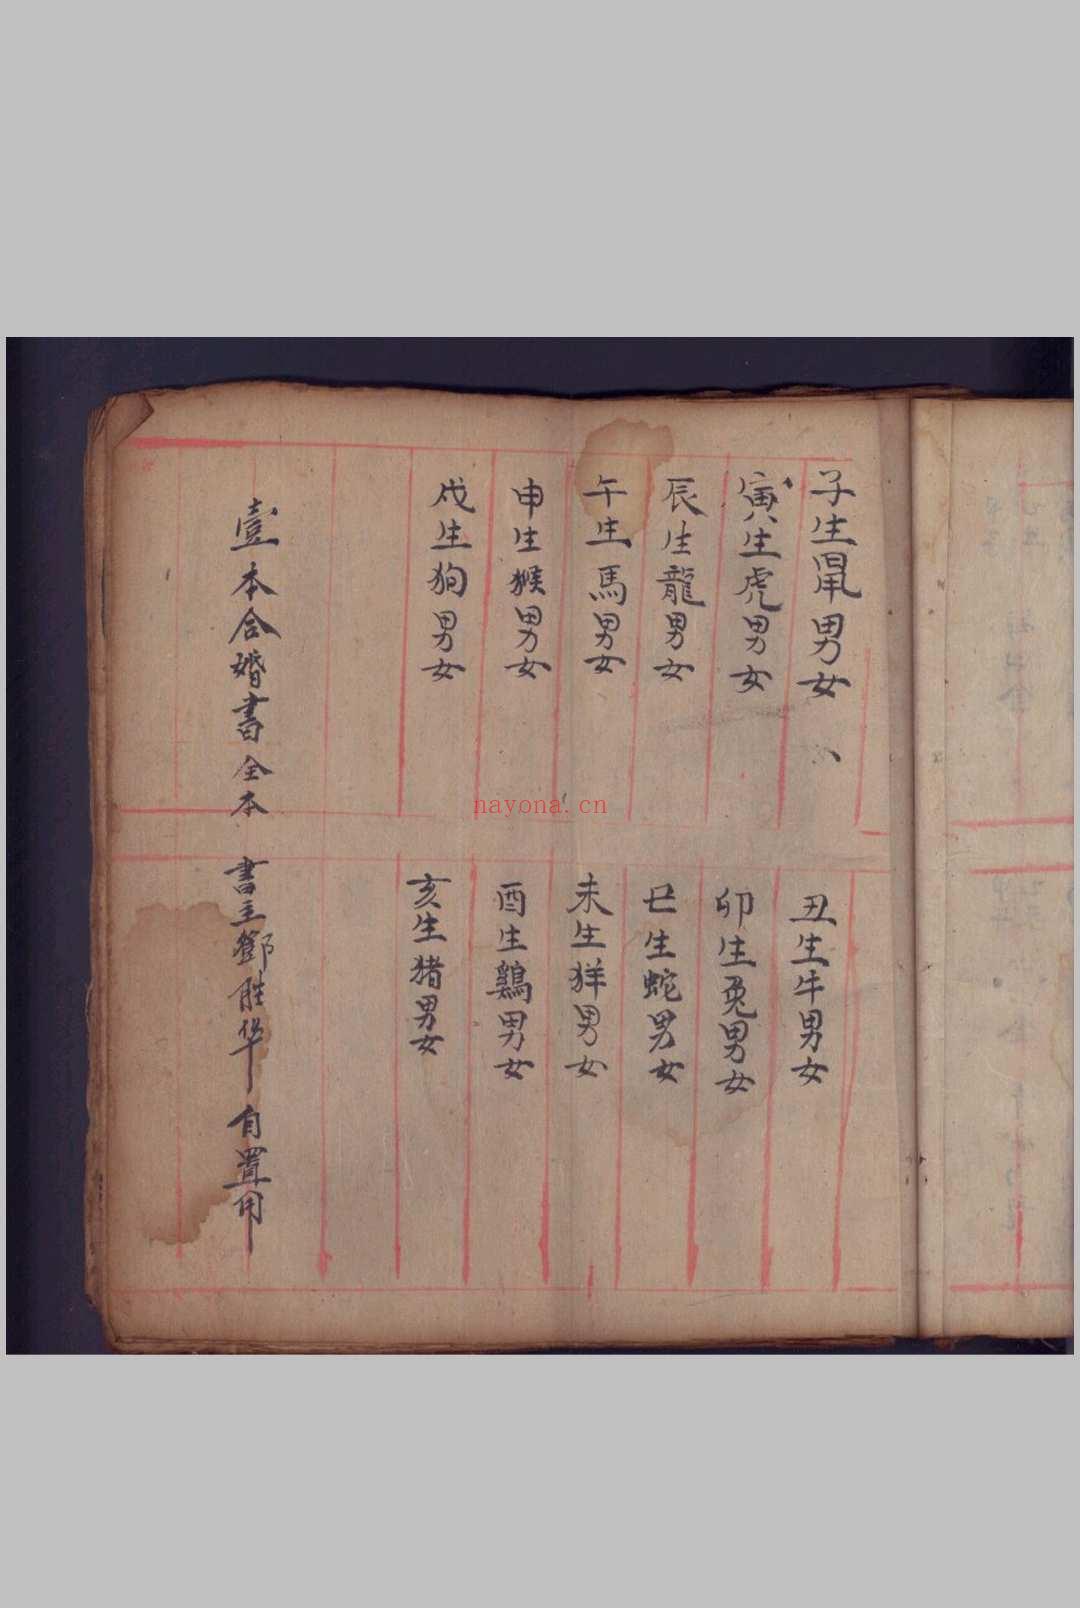 子生鼠男女
丑生牛男女
寅生虎男女
卯生兔男女
辰生龍男女
巳生蛇男女
午生馬男女
未生羊男女
申生猴男女
酉生鷄男女
戌生狗男女
亥生猪男女
壹本合婚書全本
書主鄧胜华自置用
nayona.cn